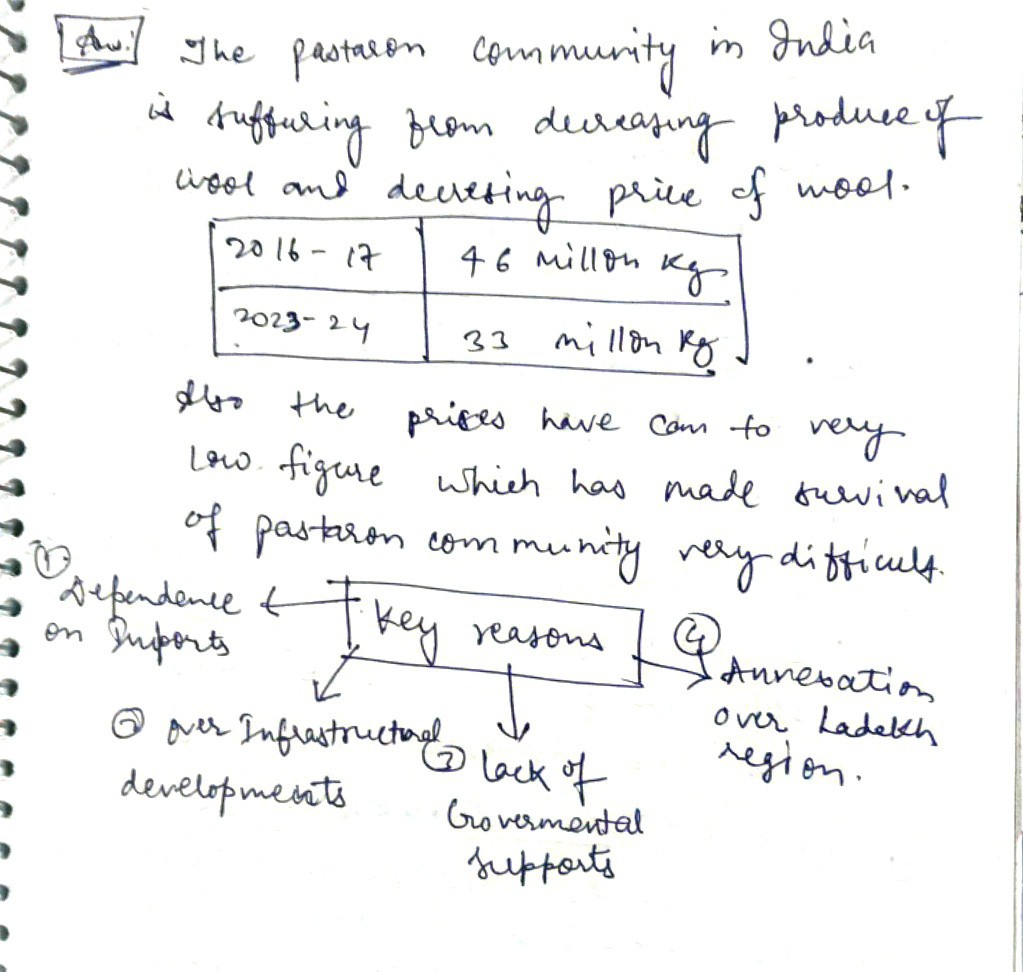 Ans:
The pastaron community in India
is suffuring from decreasing produce of
wool and decresing price of wool.
2016-17 46 millon kg
2023-24 33 millon kg
Also the prises have com to very
low figure which has made survival
of pastaron community very difficult.
Key reasons
① Dependence
on Imports
② over Infrastructural
developments
③ lack of
Govermental
supports
④ Annexation
over Ladakh
region.